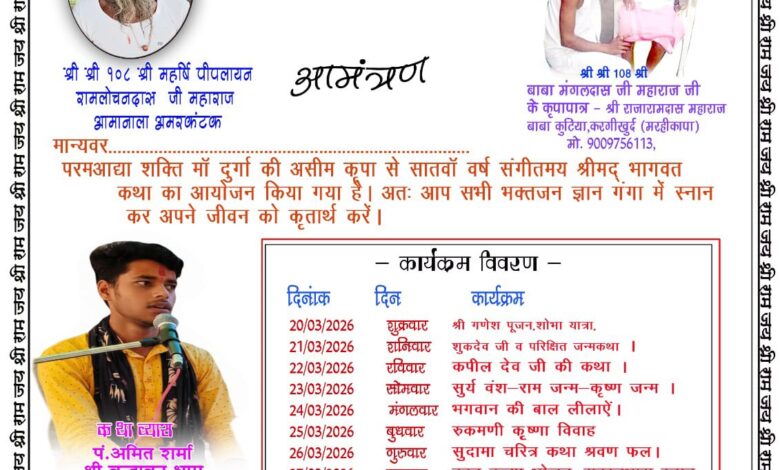 श्री श्री १०८ श्री महर्षि पीपलायन
रामलोचनदास जी महाराज
आमानाला अमरकंटक
आमंत्रण
श्री श्री 108 श्री
बाबा मंगलदास जी महाराज जी
के कृपापात्र – श्री राजारामदास महाराज
बाबा कुटिया,करगीखुर्द (मरहीकापा)
मो. 9009756113,
मान्यवर..............................................................
परमआद्या शक्ति मॉ दुर्गा की असीम कृपा से सातवॉ वर्ष संगीतमय श्रीमद् भागवत
कथा का आयोजन किया गया है। अतः आप सभी भक्तजन ज्ञान गंगा में स्नान
कर अपने जीवन को कृतार्थ करें।
– कार्यक्रम विवरण –
दिनांक दिन कार्यक्रम
20/03/2026 शुक्रवार श्री गणेश पूजन,शोभा यात्रा,
21/03/2026 शनिवार शुकदेव जी व परिक्षित जन्मकथा ।
22/03/2026 रविवार कपील देव जी की कथा ।
23/03/2026 सोमवार सुर्य वंश–राम जन्म–कृष्ण जन्म ।
24/03/2026 मंगलवार भगवान की बाल लीलाऐं ।
25/03/2026 बुधवार रुकमणी कृष्णा विवाह
26/03/2026 गुरुवार सुदामा चरित्र कथा श्रवण फल।
कथा व्यास
पं.अमित शर्मा
जय श्री राम जय श्री राम जय श्री राम जय श्री राम जय श्री राम
जय श्री राम जय श्री राम जय श्री राम जय श्री राम जय श्री राम